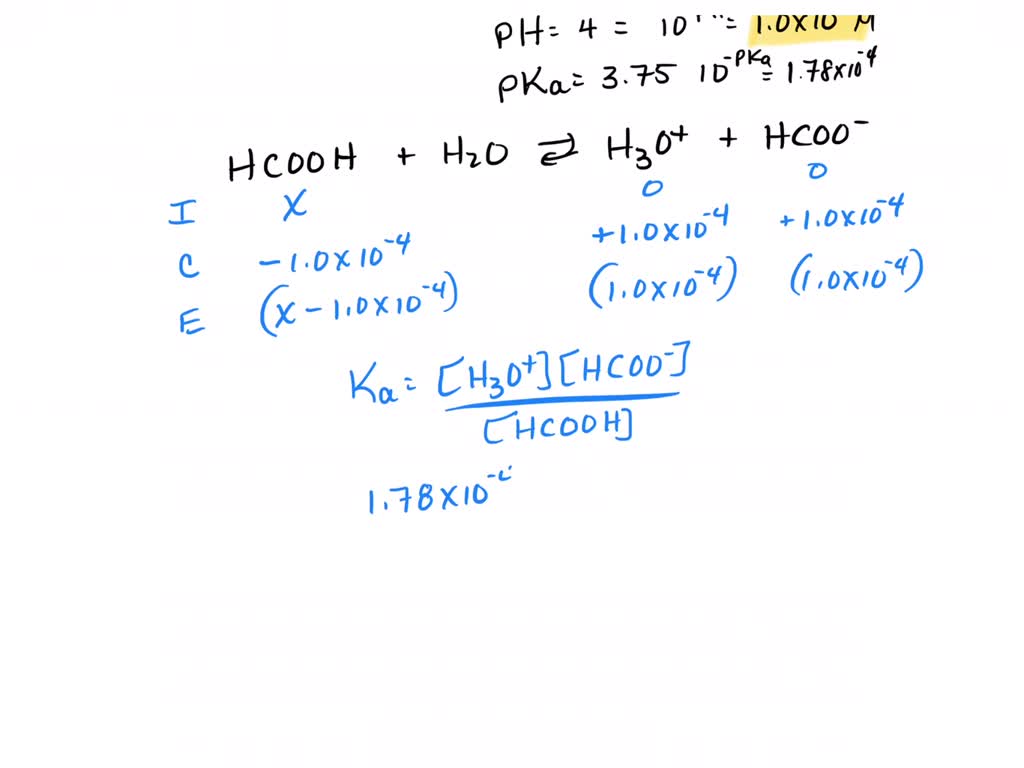 PH = 4 = 10 = 1.0×10 M
PKa = 3.75 10^-PKa = 1.78×10^-4
HCOOH + H2O ⇌ H3O+ + HCOO-
I X 0 0
C -1.0×10^-4 +1.0×10^-4 +1.0×10^-4
E (X - 1.0×10^-4) (1.0×10^-4) (1.0×10^-4)
Ka = [H3O+][HCOO-]
[HCOOH]
1.78×10